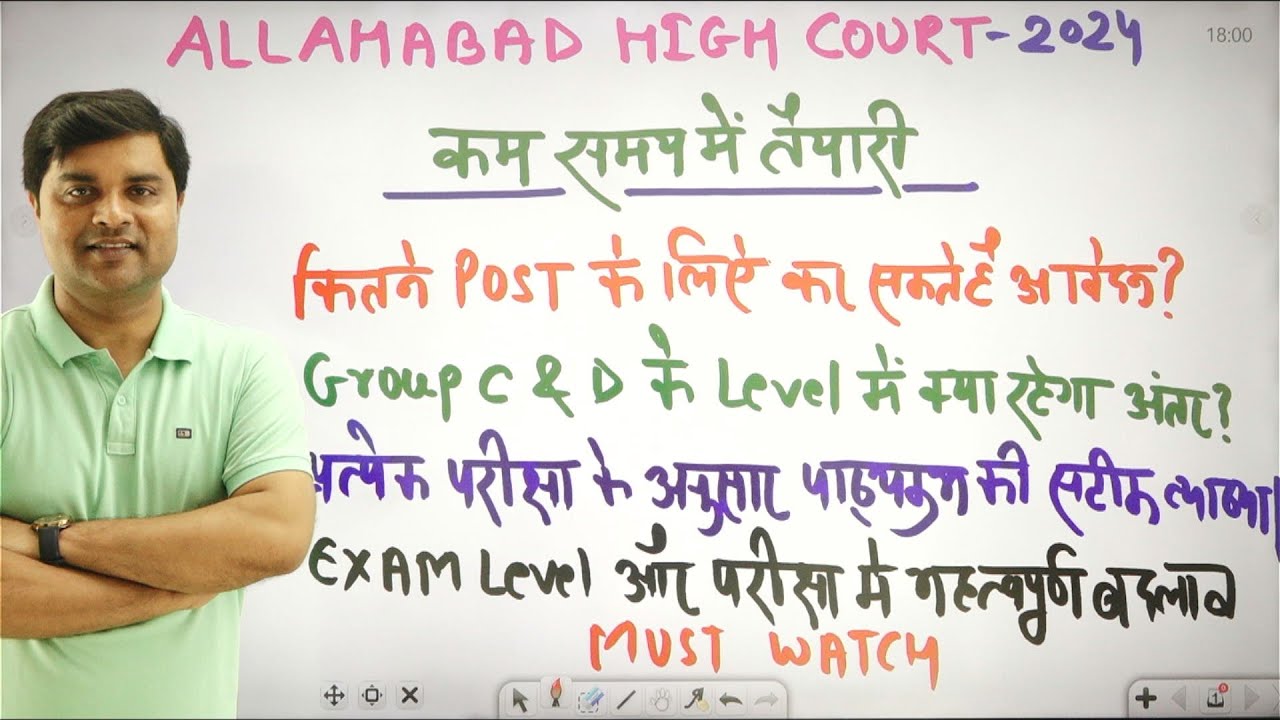 ALLAHABAD HIGH COURT-2024
18:00
कम समय में तैयारी
कितने POST के लिए कर सकते हैं आवेदन?
Group C & D के Level में क्या रहेगा अंतर?
प्रत्येक परीक्षा के अनुसार पाठ्यक्रम की सटीक व्याख्या।
EXAM Level और परीक्षा में महत्वपूर्ण बदलाव
MUST WATCH